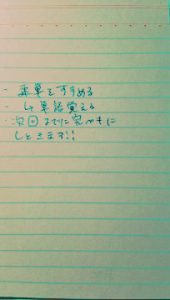 ・英単をすすめる
・↳単語覚える
・次回までに完ペキに
しときます!!